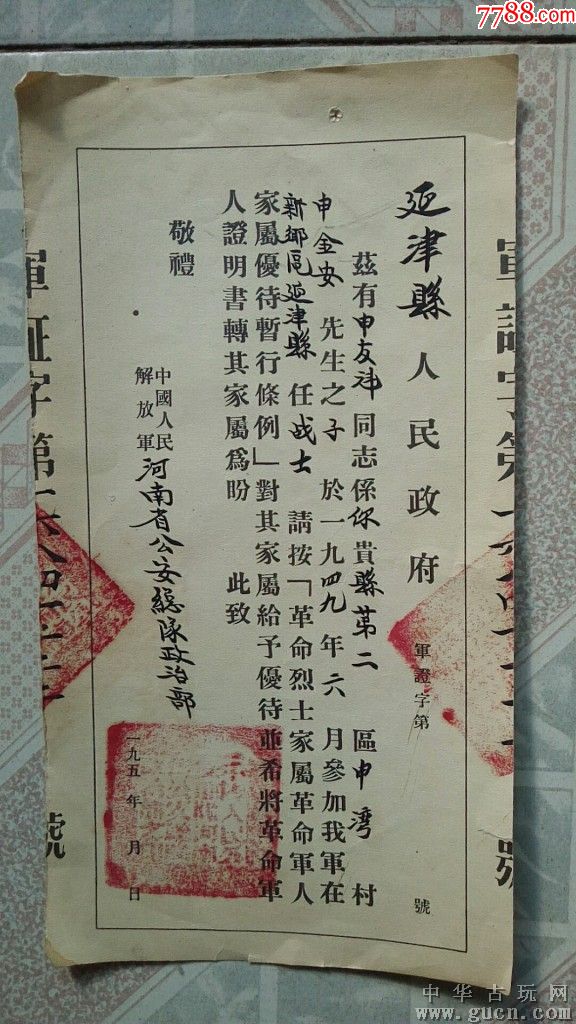 7788.com
延津縣人民政府
軍證字第 號
茲有申友沣同志係你貴縣第二區申灣村
申金安先生之子於一九四九年六月參加我軍在
新鄉區延津縣任战士請按「革命烈士家屬革命軍人
家屬優待暫行條例」對其家屬給予優待並希將革命軍
人證明書轉其家屬爲盼 此致
敬禮
中國人民
解放軍河南省公安總隊政治部
一九五 年 月 日
軍証字第
號
中华古玩网
www.gucn.com